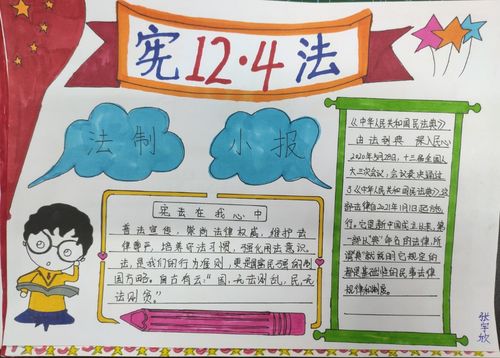 宪12·4法
法制
小报
宪法在我心中
普法宣传，崇尚法律权威，维护法
律尊严，培养守法习惯，强化用法意识。
法，是我们的行为准则，更是国家民强的制
国方略。自古有云：“国，无法则乱，民，无
法则贫。”
《中华人民共和国民法典》
由法到典 深入民心
2020年5月28日，十三届全国人
大三次会议，会议表决通过
了《中华人民共和国民法典》，这
部法律自2021年1月1日起施
行。它是新中国成立以来，第一
部以“典”命名的法律，所
谓“典”就说明它规定的
都是基础性的民事法律
规律和制度。
张宇欣